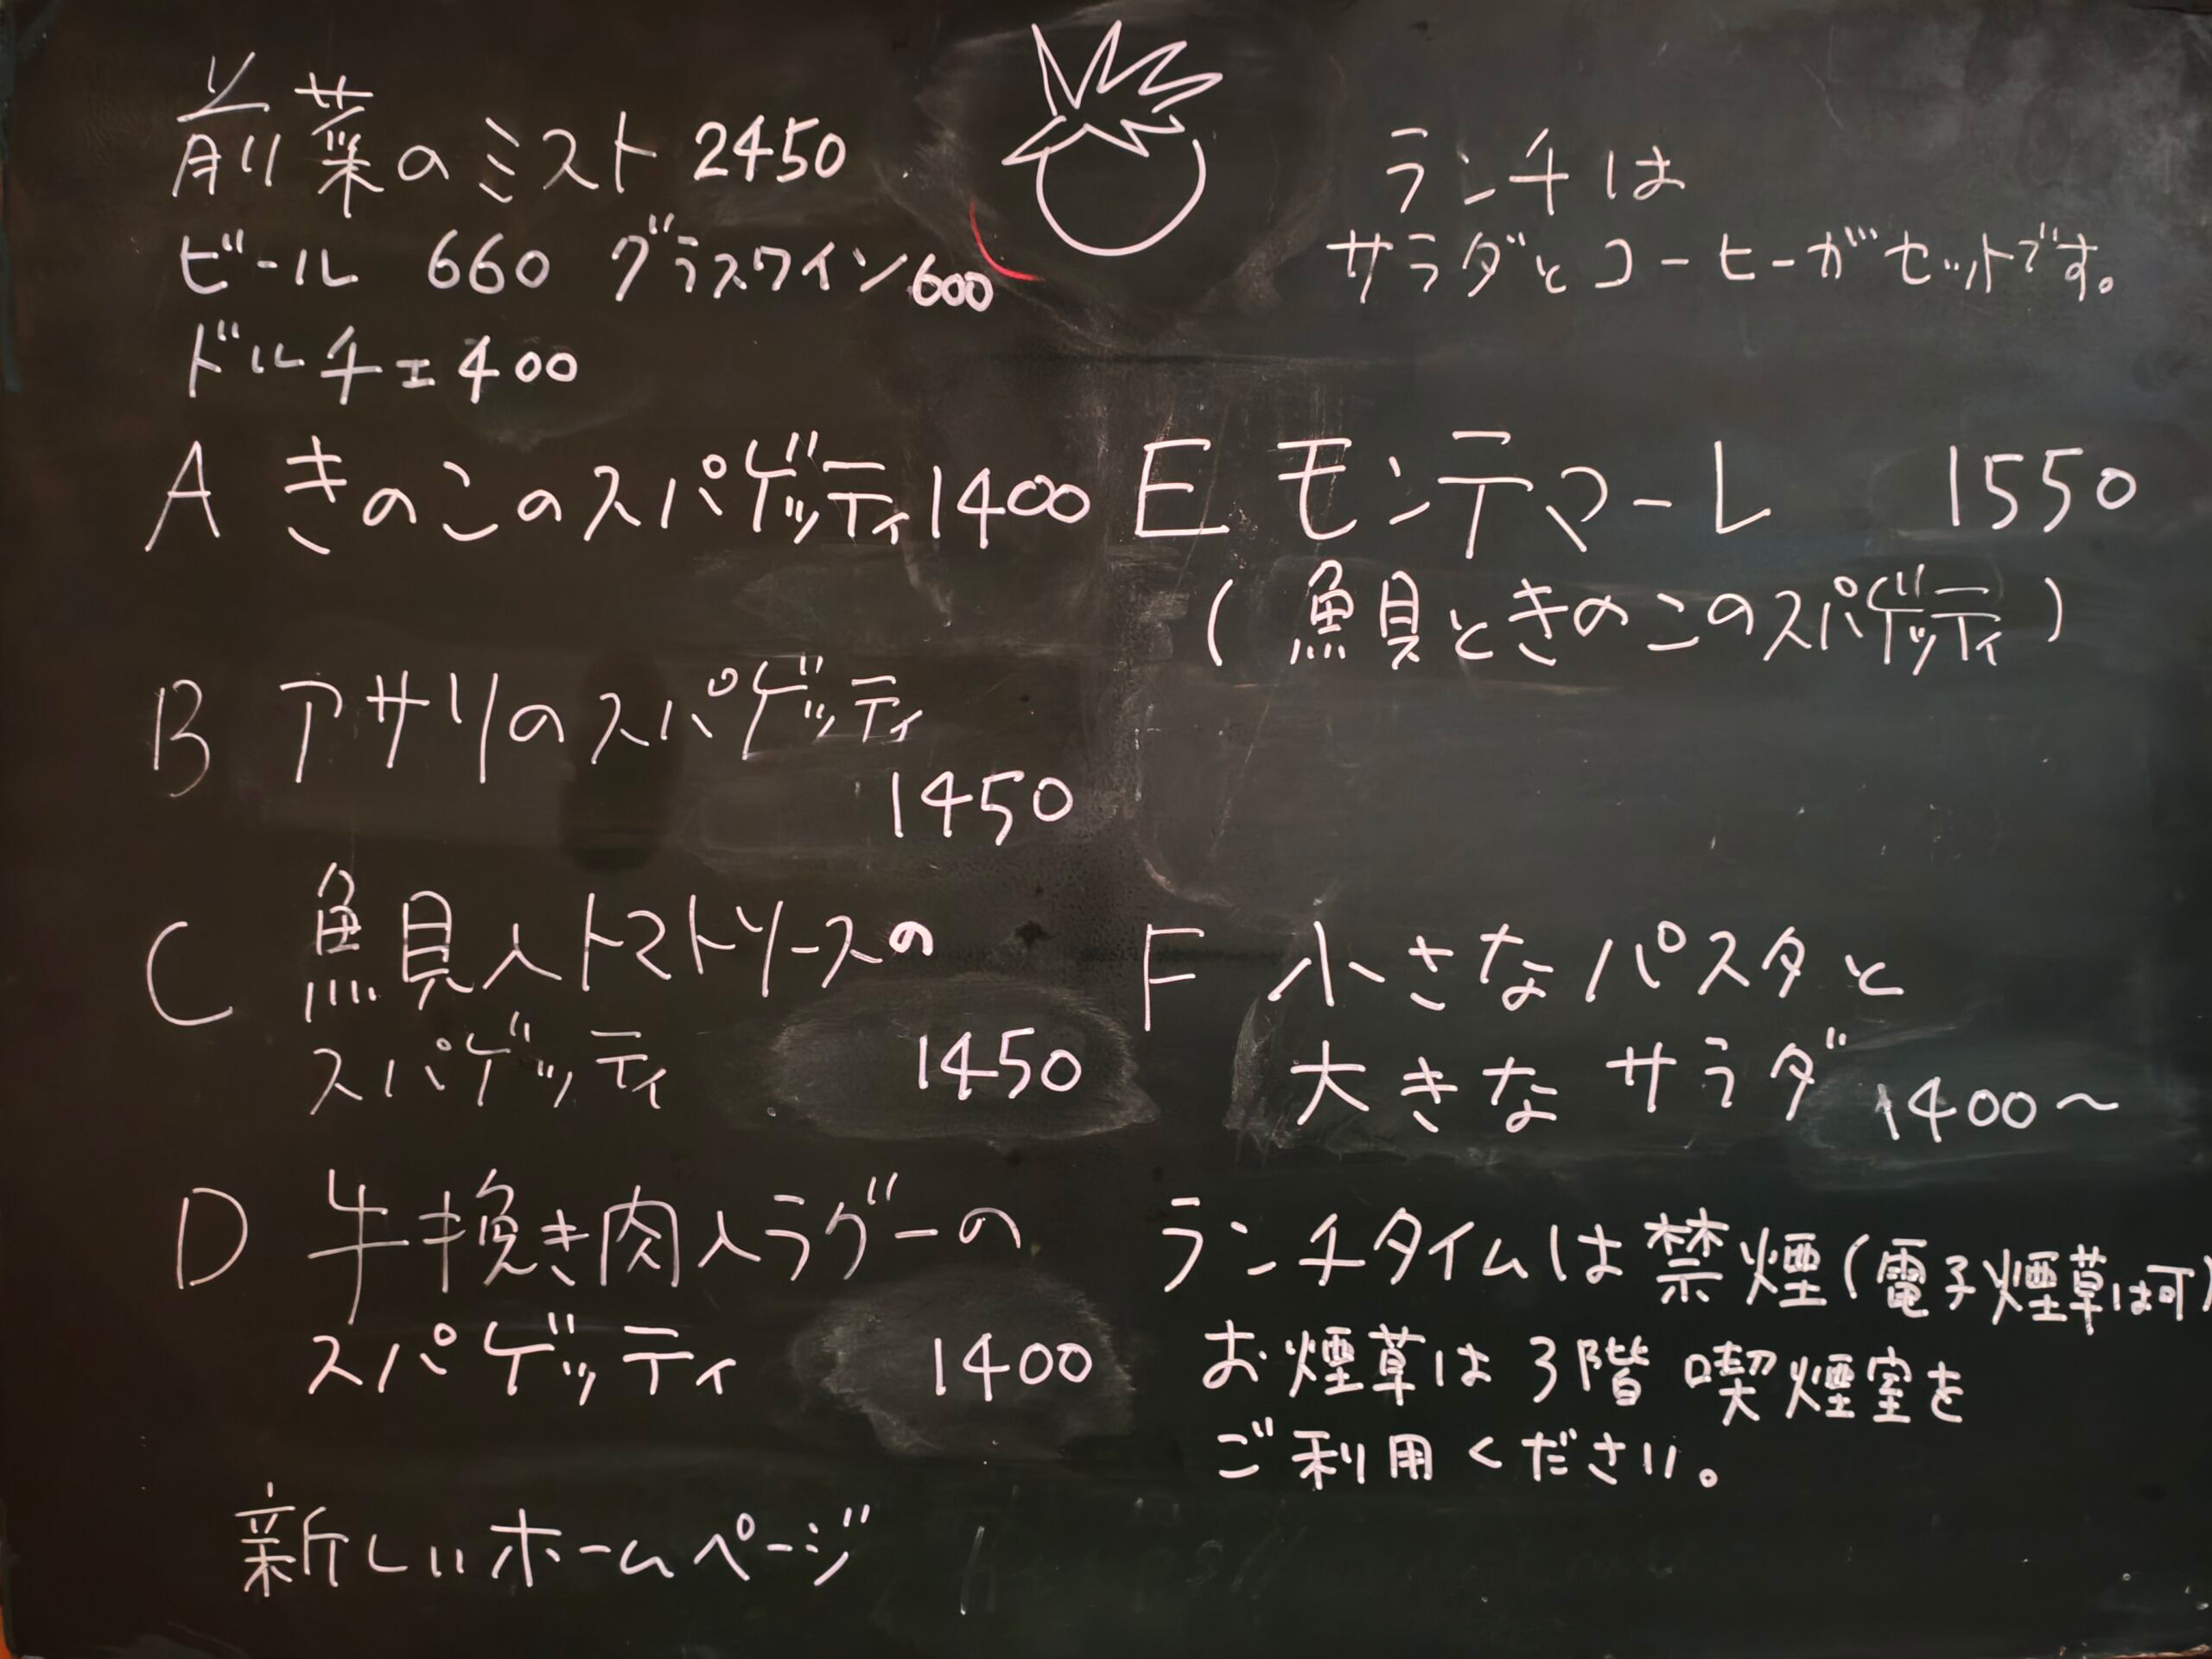 前菜のミスト 2450
ビール 660 グラスワイン600
ドルチェ400
ランチは
サラダとコーヒーがセットです。
A きのこのスパゲッティ1400
B アサリのスパゲッティ
1450
C 魚貝入トマトソースの
スパゲッティ 1450
D 牛挽き肉入ラグーの
スパゲッティ 1400
新しいホームページ
E モンテマーレ 1550
(魚貝ときのこのスパゲッティ)
F 小さなパスタと
大きなサラダ 1400〜
ランチタイムは禁煙(電子煙草は可)
お煙草は3階 喫煙室を
ご利用ください。